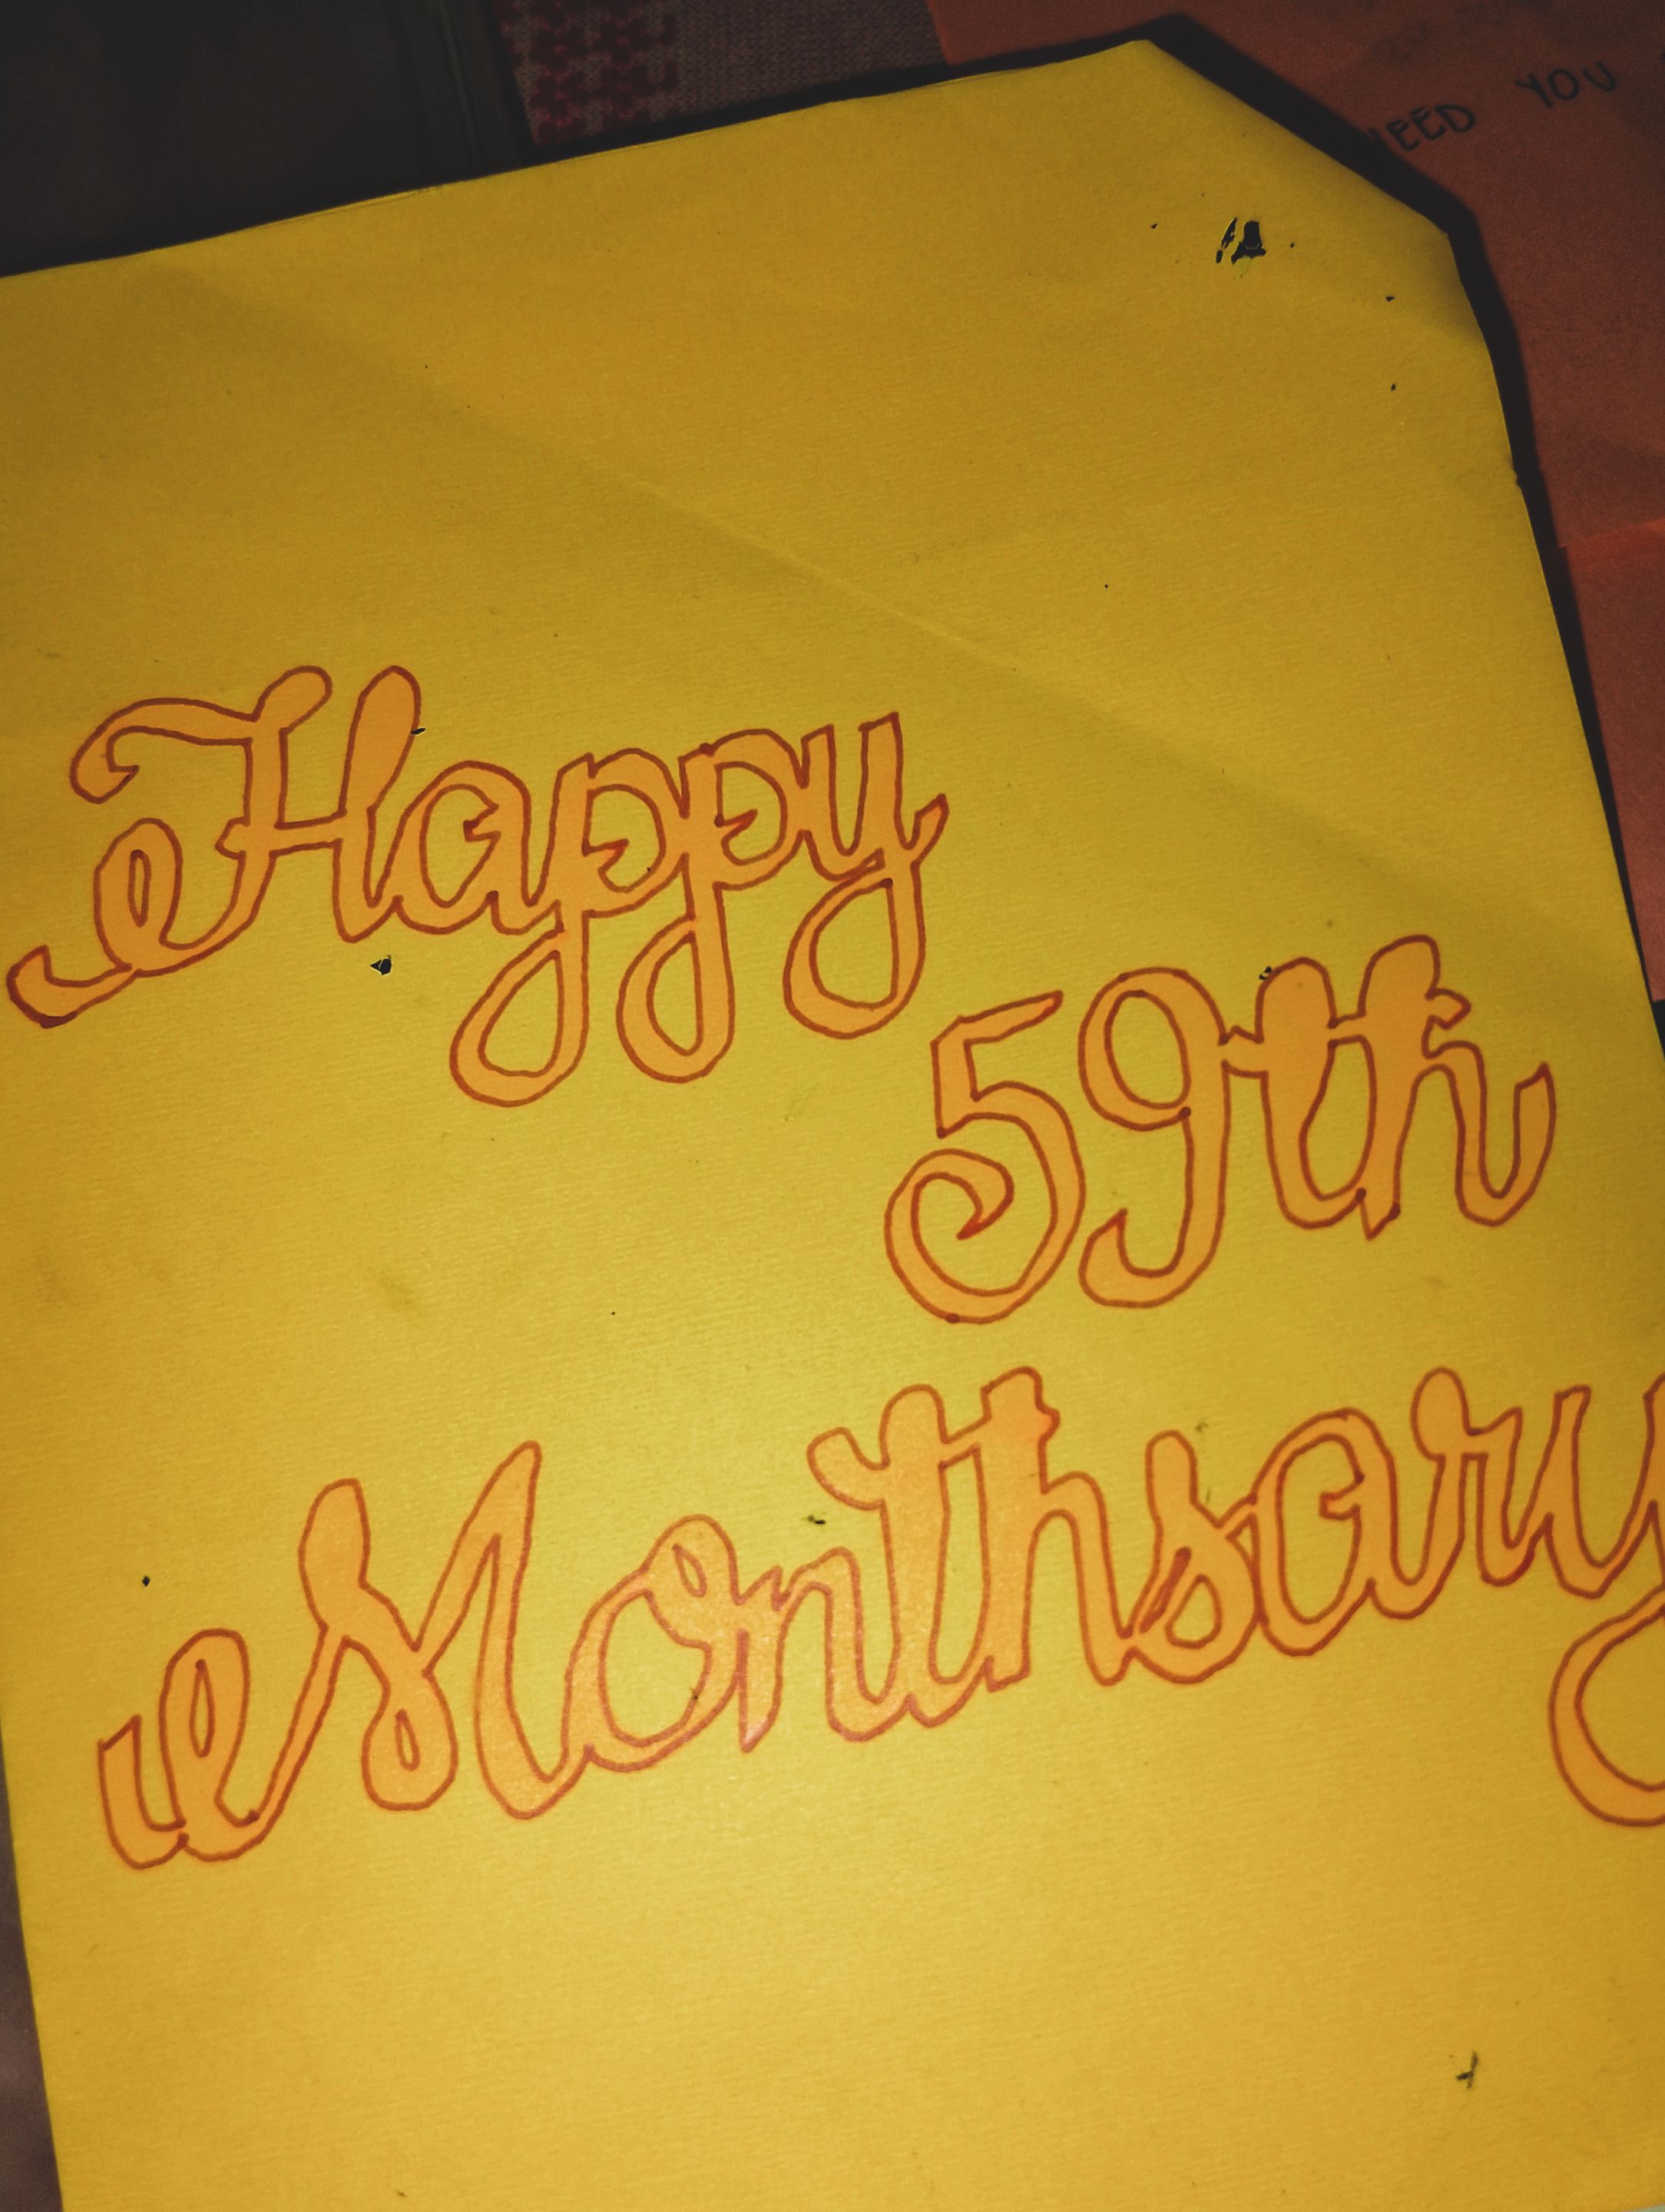 NEED YOU
Happy
59th
Monthsary